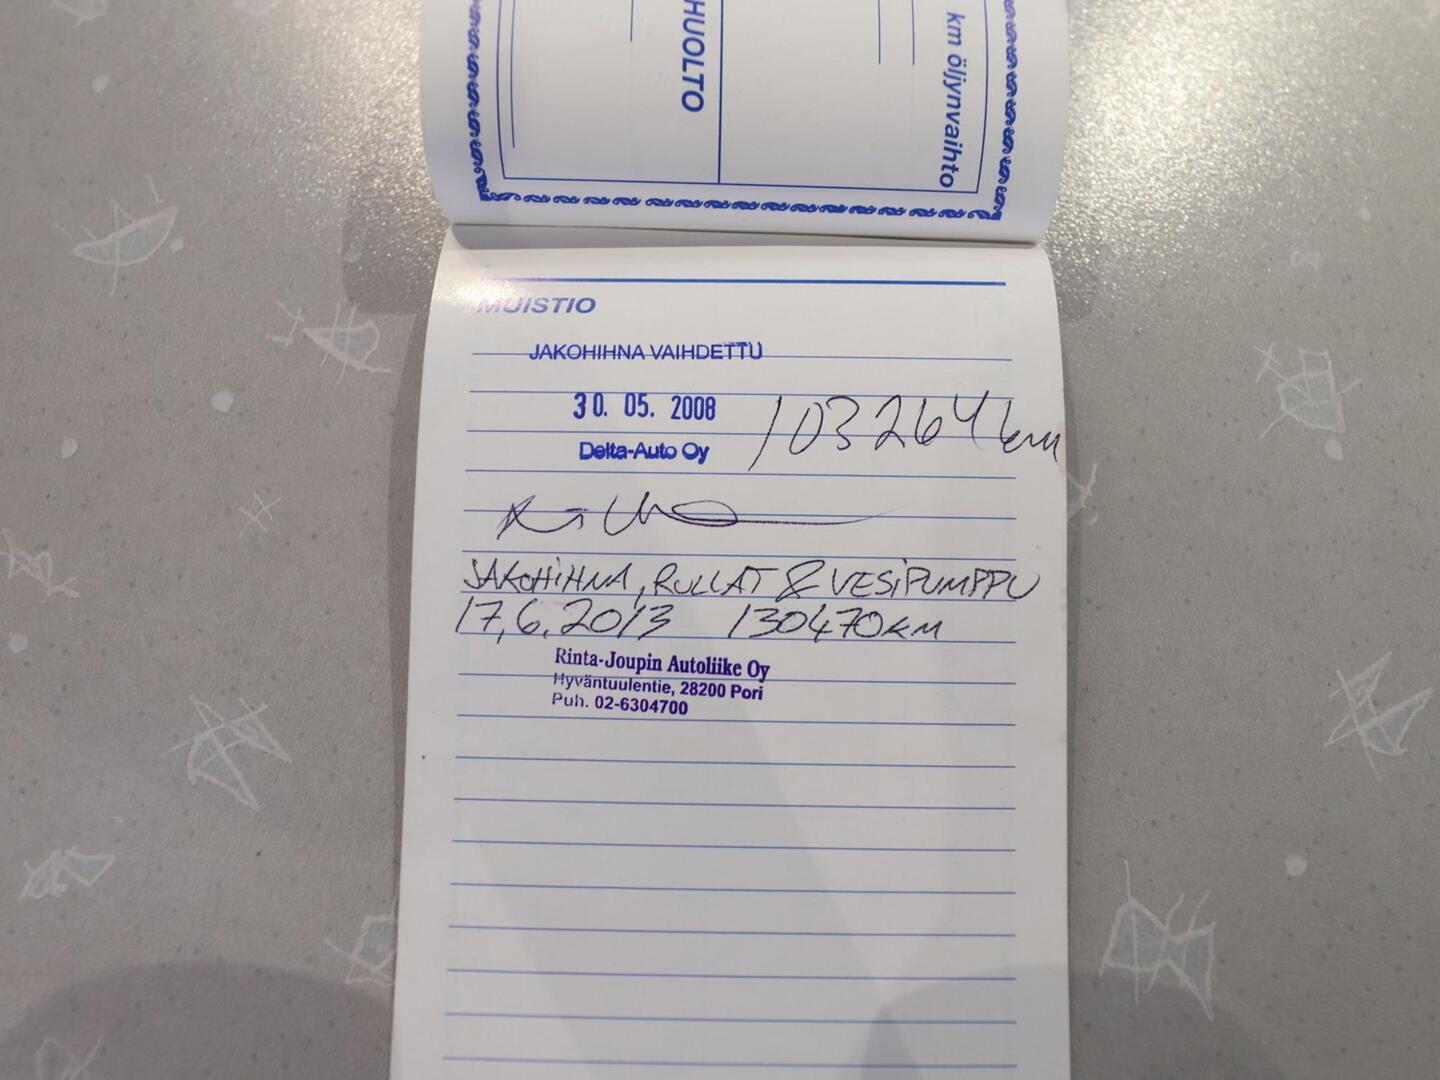 HUOLTO
km öljynvaihto
MUISTIO
JAKOHIHNA VAIHDETTU
30. 05. 2008
103264 km
Delta-Auto Oy
JAKOHIHNA, RULLAT & VESIPUMPPU
17.6.2013 130470KM
Rinta-Joupin Autoliike Oy
Hyväntuulentie, 28200 Pori
Puh. 02-6304700